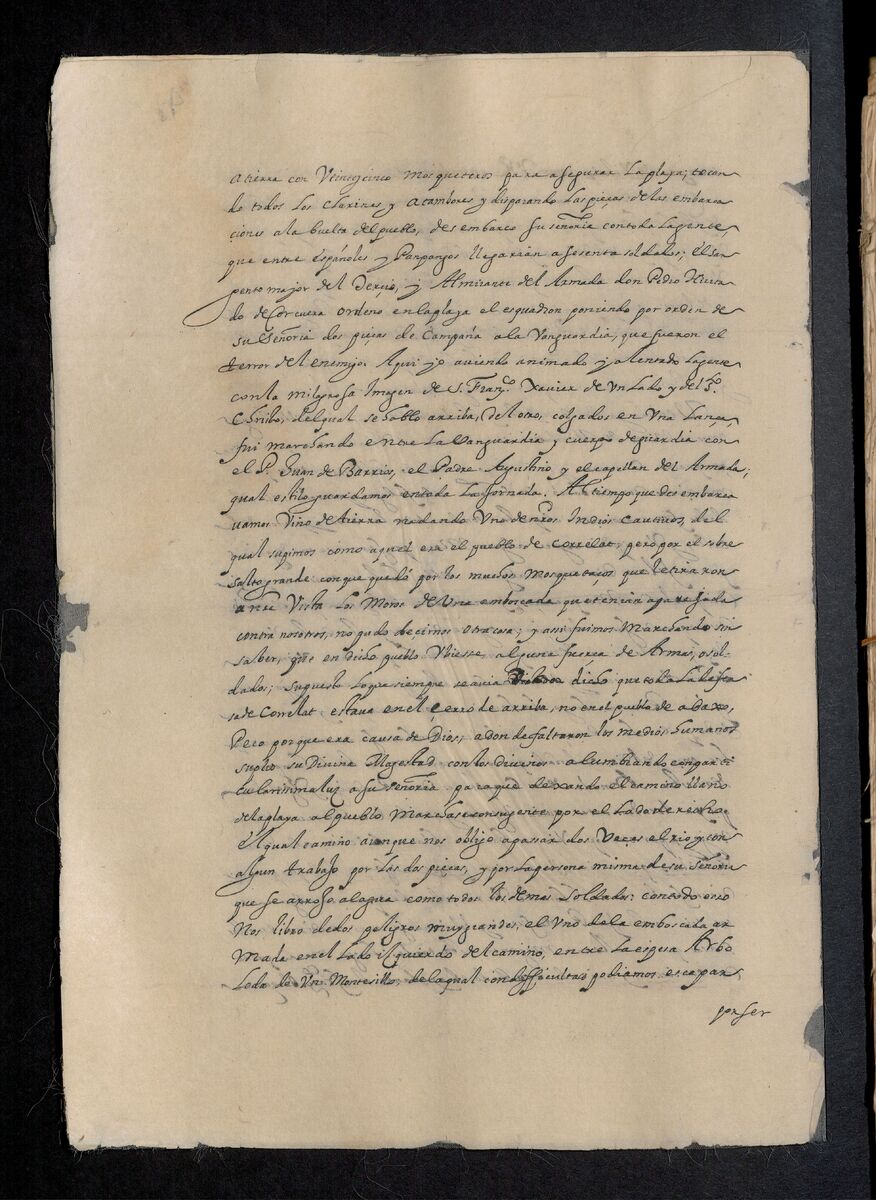 a tierra con Veinteycinco Mosqueteros para asegurar la playa; tocan
do todos los Clarines y Atambores y disparando las pieças de las embarca
ciones a la buelta del pueblo, desembarco su señoria con toda la gente,
que entre españoles y Panpangos llegarian a sesenta soldados; El sar
gento major del Terçio, y Almirante del Armada don Pedro Hurta
do de Corcuera ordeno en la playa el esquadron poniendo por orden de
su Señoria dos pieças de Campaña a la Vanguardia, que fueron el
terror del enemigo. Aqui yo aviendo animado y alentado la gente
con la milagrosa Imagen de S. Franco. Xavier de Vn Lado y del So.
Christo, del qual se hablo arriba, del otro, colgados en Vna Lança,
fui marchando entre La Vanguardia y cuerpo deguardia con
el P. Juan de Barrios, el Padre Agustino y el capellan del Armada;
qual estilo guardamos en toda La Jornada. Al tiempo que desembarca
vamos Vino de tierra nadando Vno de nros. Indios Cautivos, del
qual supimos como aquel era el pueblo de Correlat, pero por el sobre
salto grande con que quedó por los muchos Mosquetaços que le tiraron
a nra Vista los Moros de Vna emboscada que tenian aparejada
contra nosotros, no pudo decirnos otra cosa; y assi fuimos Marchando sin
saber, que en dicho pueblo Vbiesse alguna fuerça de Armas, o sol-
dados; supuesto lo que siempre se avia dicho que toda La defen
sa de Correlat estava en el çerro de arriba, no en el pueblo de abaxo,
Pero porque era causa de Dios, a donde faltaron los medios humanos
suplio su Divina Magestad con los divinos alumbrando con parti
cularissima luz a su señoria para que dexando el camino llano
de la playa al pueblo Marchasse con su gente por el Lado derecho
El qual camino aunque nos obligo a passar dos Veces el rio y con
algun trabajo por las dos pieças, y por la persona misma de su señoria
que se arrojo al agua como todos los demas Soldados: con todo esso
Nos libro de dos peligros muy grandes, el Vno de la emboscada ar
Mada en el Lado izquierdo del camino, entre la espesa Arbo
Leda de Vn Montesillo, de la qual con difficultad podiamos escapar,
por ser